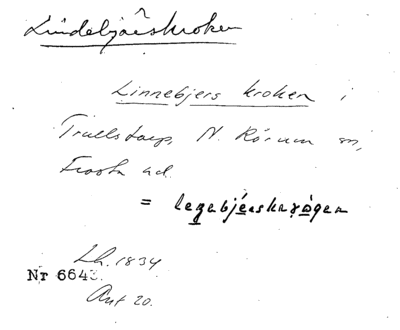 Lindebjärskroken
Linnebjers kroken i
Trullstorp, N. Rörum sn,
Frosta hd.
= legebjerskrågen
Lh. 1834
Nr 6643.
Ant 20.